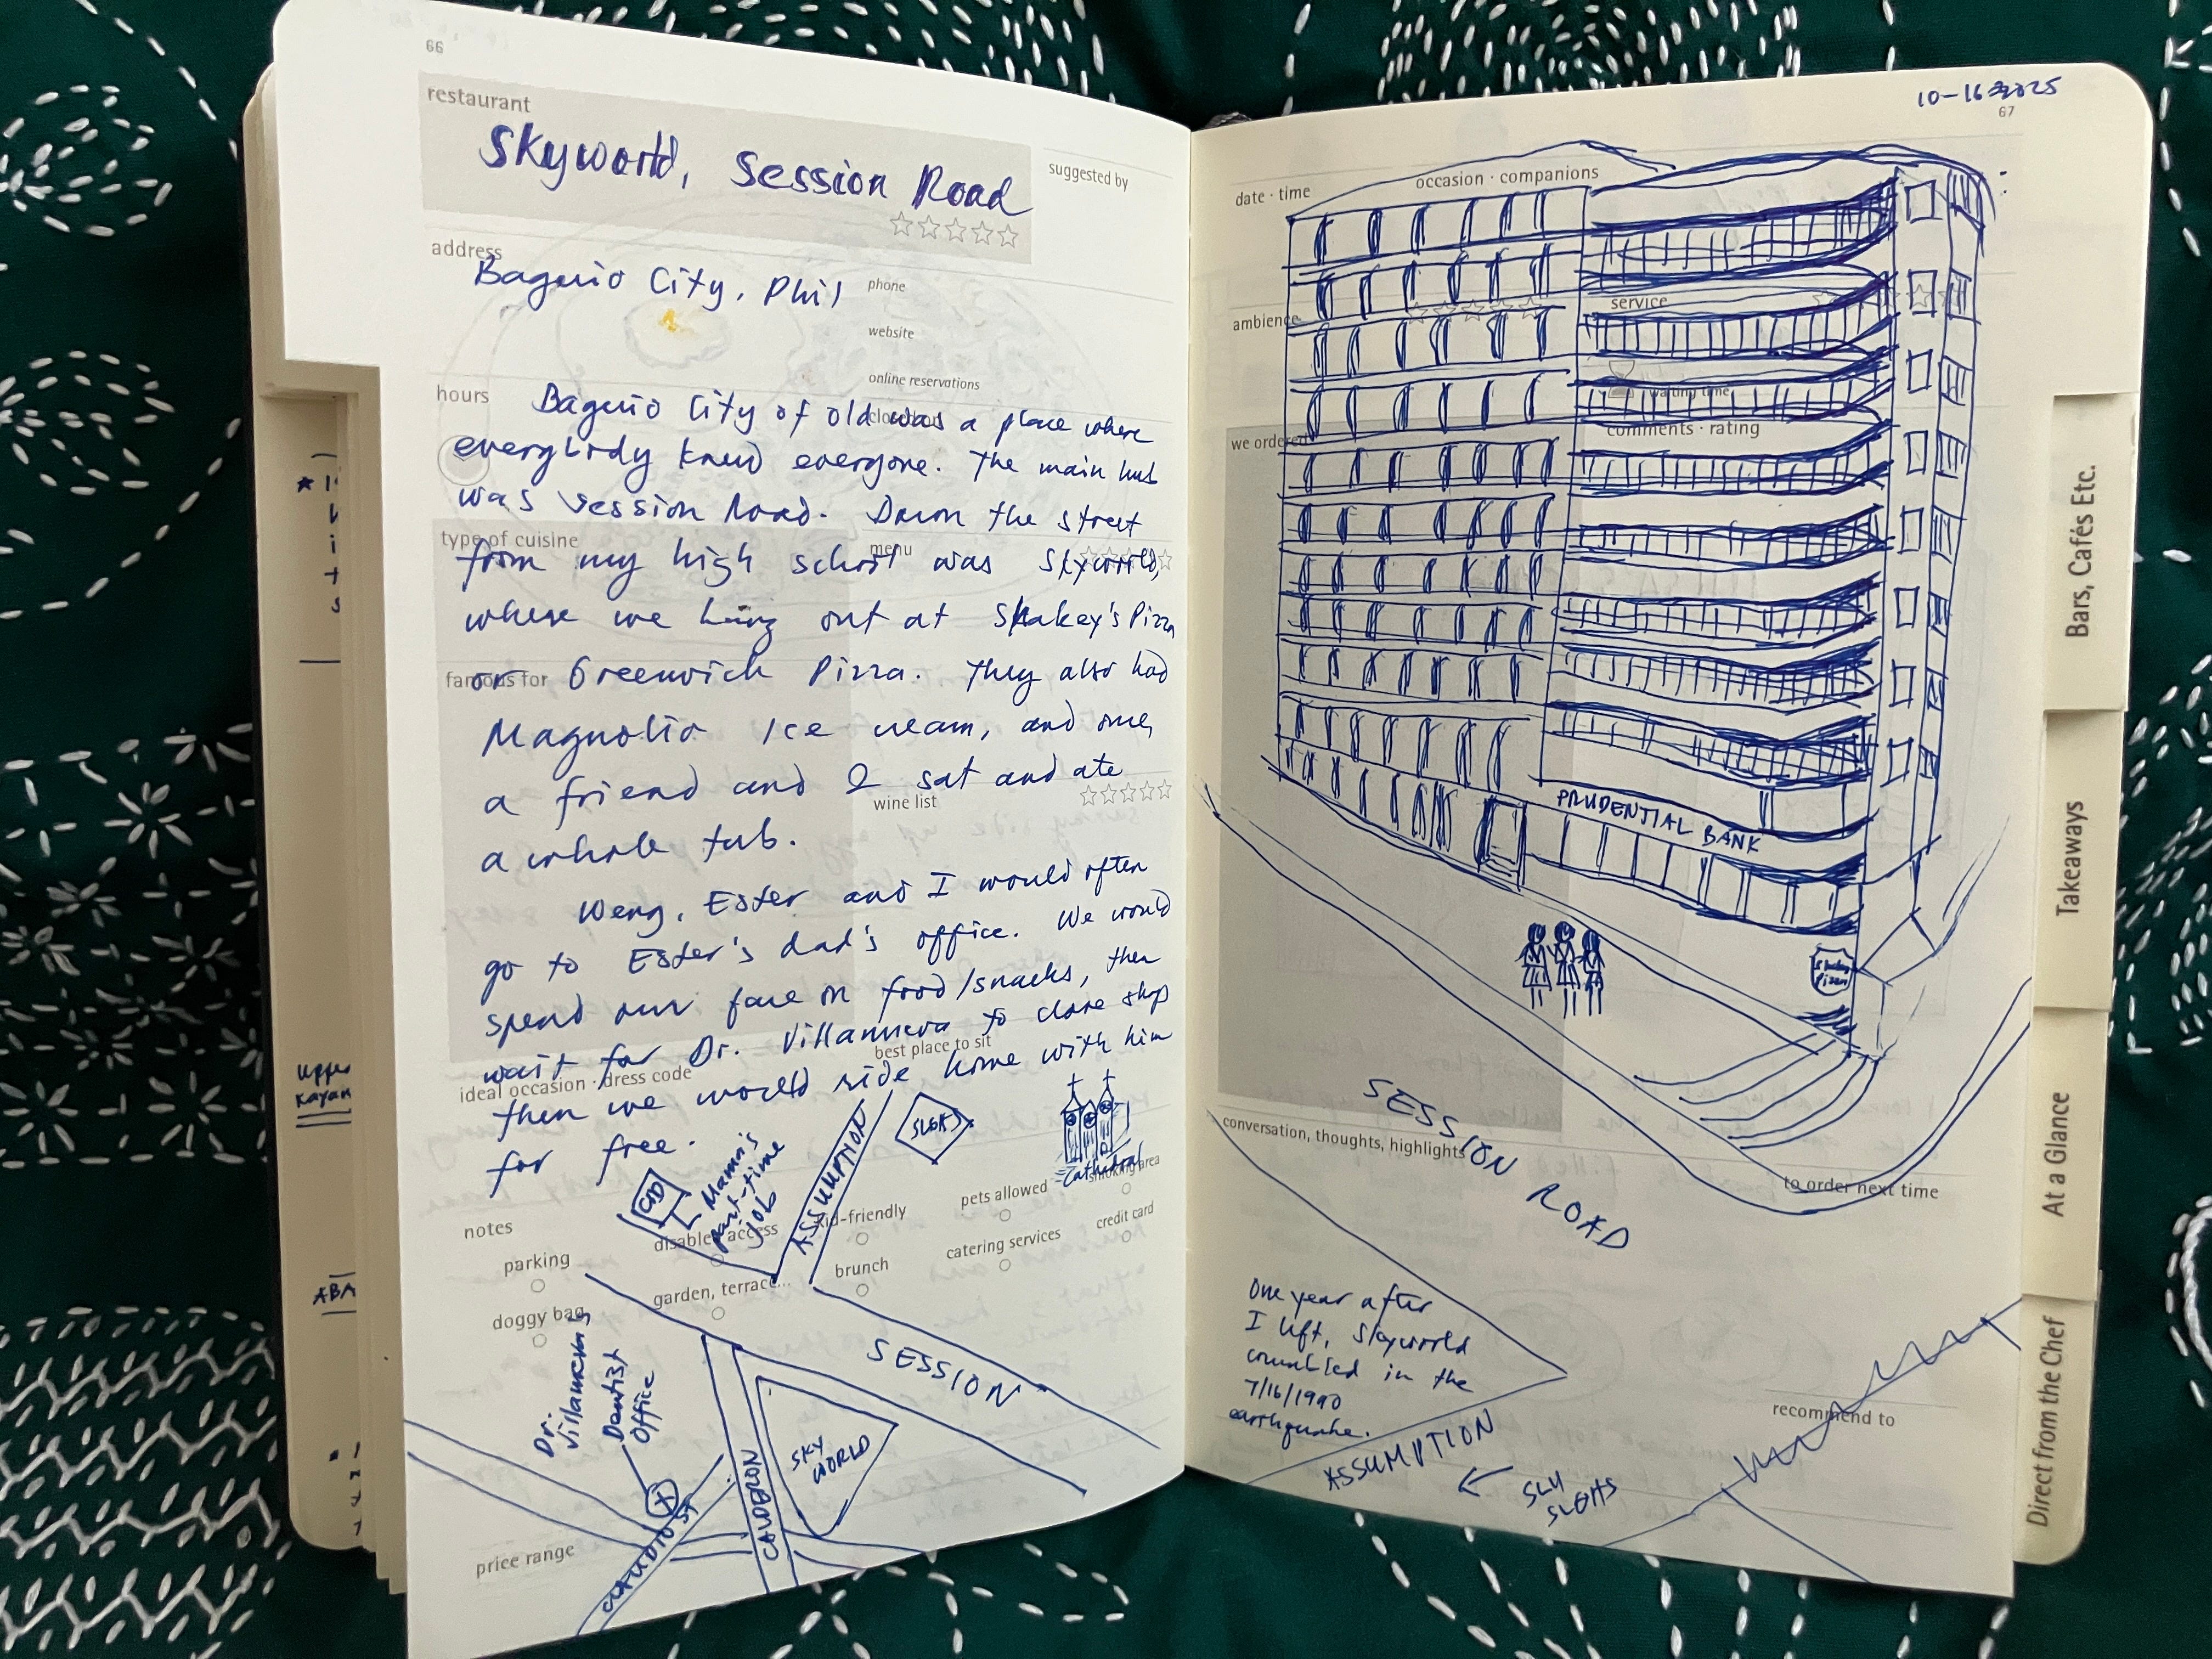 66
restaurant
Skyworld, Session Road
suggested by
address
Baguio City, Phil
phone
website
online reservations
hours
Baguio City of old was a place where
everybody knew everyone. The main hub
was Session Road. Down the street
type of cuisine
menu
from my high school was Skyworld,
where we hung out at Shakey's Pizza
famous for
or Greenwich Pizza. They also had
Magnolia Ice cream, and once,
a friend and I sat and ate
wine list
a whole tub.
Weng, Ester and I would often
go to Ester's dad's office. We would
spend our fare on food/snacks, then
wait for Dr. Villanueva to close shop
best place to sit
ideal occasion · dress code
then we would ride home with him
for free.
CID
Mama's
part-time
job
ASSUMPTION
SLGHS
Cathedral
smoking area
notes
parking
disabled access
kid-friendly
pets allowed
credit card
doggy bag
garden, terrace...
brunch
catering services
Dr.
Villanueva's
Dentist
Office
SESSION
SKY
WORLD
CALDERON
CLAUDIO ST
price range
10-16-2025
67
date · time
occasion · companions
ambience
service
waiting time
we ordered
comments · rating
PRUDENTIAL BANK
Shakeys
Pizza
SESSION ROAD
conversation, thoughts, highlights
to order next time
One year after
I left, Skyworld
crumbled in the
7/16/1990
earthquake.
recommend to
ASSUMPTION
← SLU
SLGHS
Bars, Cafés Etc.
Takeaways
At a Glance
Direct from the Chef
Upper
Kayan
ABA